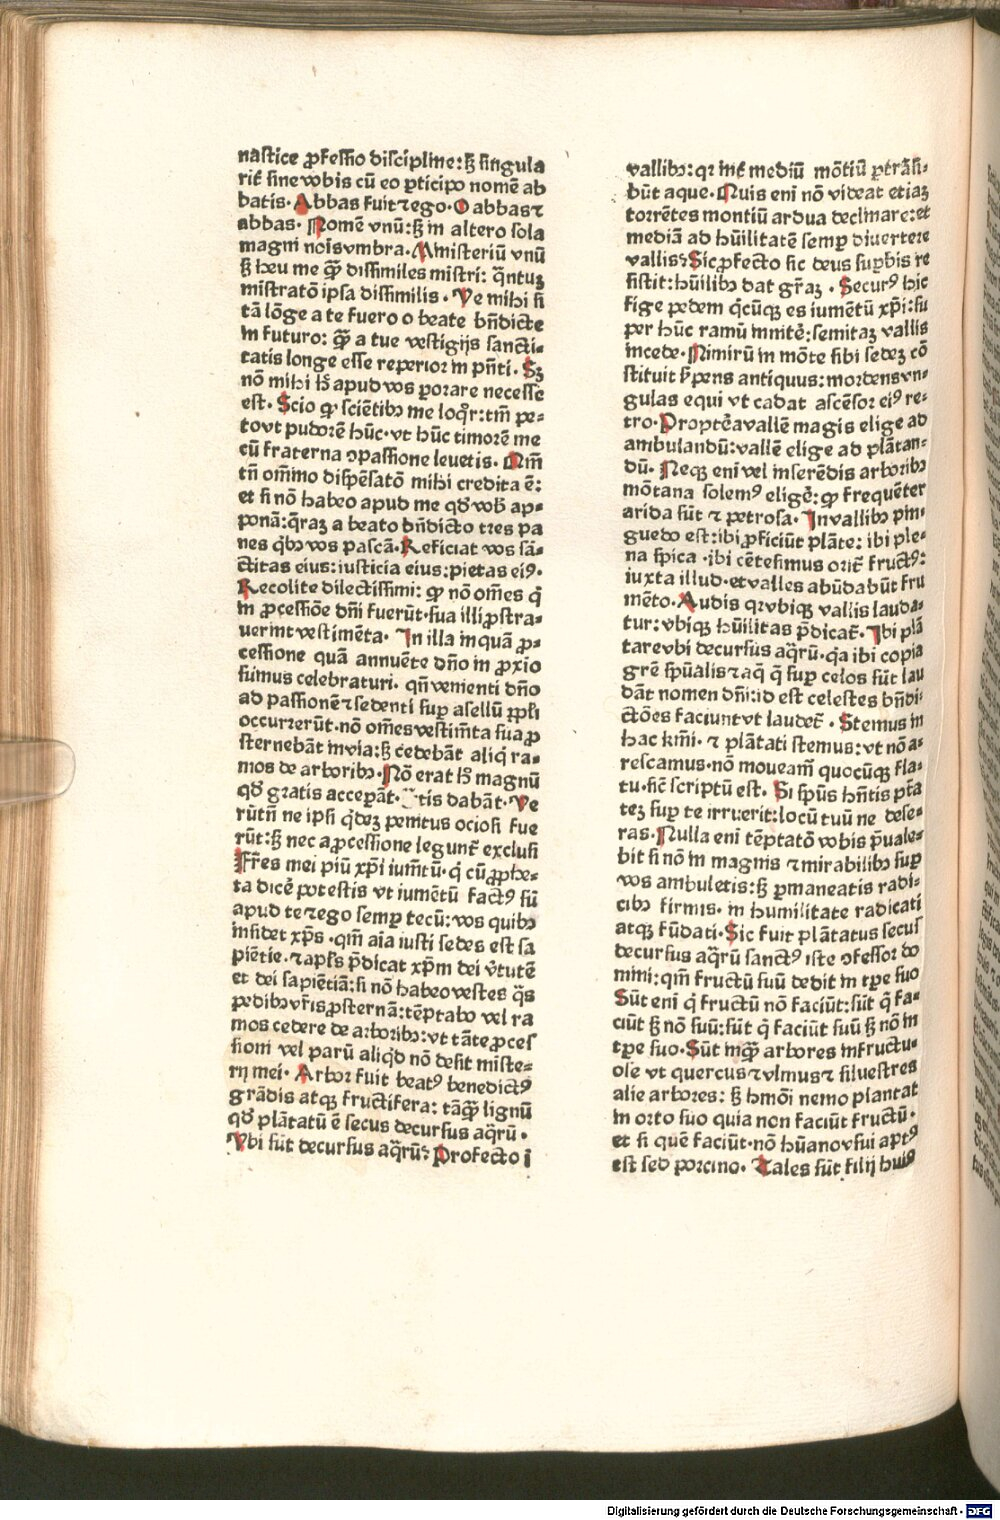 nastice ꝓfessio discipline: sꝫ singula
rit̃ sine vobis cū eo ꝑticipo nomē ab
batis. Abbas fuit ⁊ ego. O abbas ⁊
abbas. Nomē vnū: sꝫ in altero sola
magni noīs vmbra. Ministeriū vnū
sꝫ heu me q̄ꝫ dissimiles mīstri: q̄ntuꝫ
mīstratō ipsa dissimilis. Ve mihi si
tā lōge a te fuero o beate bn̄dicte
in futuro: q̄ꝫ a tue vestigijs sancti-
tatis longe esse reperior in pn̄ti. Sꝫ
nō mihi hꝭ apud vos ꝑorare necesse
est. Scio ꝙ sciētibꝫ me loq̇r: tm̄ pe-
to vt pudorē hūc. vt hūc timorē me
cū fraterna ꝯpassione leuetis. Qm̄
tn̄ om̄imo dispēsatō mihi credita ē:
et si nō habeo apud me qd̄ vob̄ ap-
ponā: q̄raꝫ a beato bn̄dicto tres pa
nes q̇bꝫ vos pascā. Reficiat vos sā-
ctitas eius: iusticia eius: pietas eiꝰ.
Recolite dilectissimi: ꝙ nō om̄es q̇
in ꝓcessiōe dn̄i fuerūt. sua illi ꝓstra-
uerint vestimēta. In illa inquā ꝓ-
cessione quā annuēte dn̄o in ꝓxio
sumus celebraturi. qn̄ venienti dn̄o
ad passionē ⁊ sedenti suꝑ asellū ꝓpl̄i
occurrerūt. nō om̄es vestim̄ta sua ꝓ
sternebāt in via: sꝫ cedebāt aliq̇ ra-
mos de arboribꝫ. Nō erat hꝭ magnū
qd̄ gratis acceꝑāt. tis dabāt. Ve
rūtn̄ ne ipsi q̇deꝫ penitus ociosi fue
rūt: sꝫ nec a ꝓcessione legunt̃ exclusi
Fr̄es mei piū xp̄i ium̄tū. q̇ cū ꝓphe-
ta dicē potestis vt iumētū factꝰ sū
apud te ⁊ ego semꝑ tecū: vos quibꝫ
insidet xp̄s. qm̄ aīa iusti sedes est sa
piētie. ⁊ apl̄s p̄dicat xp̄m dei v̄tutē
et dei sapiētiā: si nō habeo vestes q̄s
pedibꝫ vr̄is ꝓsternā: tēptabo vel ra
mos cedere de arboribꝫ: vt tāte ꝓces
sioni vel parū aliq̇d nō desit miste-
rij mei. Arbor fuit beatꝰ benedictꝰ
grādis atqꝫ fructifera: tāq̄ꝫ lignū
qd̄ plātatū ē secus decursus aq̄rū.
Vbi sūt decursus aq̄rū? Profecto ī
vallibꝫ: qꝛ int̃ mediū mōtiū ꝑtrāsi-
būt aque. Quis eni nō videat etiaꝫ
torrētes montiū ardua declinare: et
mediā ad hūilitatē semꝑ diuertere
vallis? Sic ꝓfecto sic deus suꝑbis re
sistit: hūilibꝫ dat gr̄aꝫ. Securꝰ hic
fige pedem q̇cūqꝫ es iumētū xp̄i: su
per hūc ramū innitē: semitaꝫ vallis
incede. Nimirū in mōte sibi sedeꝫ cō
stituit ẜpens antiquus: mordens vn-
gulas equi vt cadat ascēsor eiꝰ re-
tro. Proptēa vallē magis elige ad
ambulandū: vallē elige ad plātan-
dū. Neqꝫ eni vel inserēdis arboribꝫ
mōtana solemꝰ eligē: ꝙ frequēter
arida sūt ⁊ petrosa. In vallibꝫ pin-
guedo est: ibi ꝓficiūt plāte: ibi ple-
na spica. ibi cētesimus orit̃ fructꝰ:
iuxta illud. et valles abūdabūt fru
mēto. Audis qꝛ vbiqꝫ vallis lauda-
tur: vbiqꝫ hūilitas p̄dicat̃. Ibi plā
tare vbi decursus aq̄rū. q̇a ibi copia
grē spūalis ⁊ aq̄ q̄ suꝑ celos sūt lau
dāt nomen dn̄i: id est celestes bn̄di-
ctōes faciunt vt laudet̃. Stemus in
hac km̄i. ⁊ plātati stemus: vt nō a-
rescamus. nō moueam̄ quocūqꝫ fla-
tu. sic̄ scriptū est. Si spūs hn̄tis pt̄a
teꝫ suꝑ te irruerit: locū tuū ne dese-
ras. Nulla eni tēptatō vobis p̄uale-
bit si nō in magnis ⁊ mirabilibꝫ suꝑ
vos ambuletis: sꝫ ꝑmaneatis radi-
cibꝫ firmis. in humilitate radicati
atqꝫ fūdati. Sic fuit plātatus secus
decursus aq̄rū sanctꝰ iste ꝯfessor do
mini: qm̄ fructū suū dedit in tꝑe suo
Sūt eni q̇ fructū nō faciūt: sūt q̇ fa-
ciūt sꝫ nō suū: sūt q̇ faciūt suū sꝫ nō in
tꝑe suo. Sūt inq̄ꝫ arbores infructu-
ose vt quercus ⁊ vlmus ⁊ siluestres
alie arbores: sꝫ hmōi nemo plantat
in orto suo quia non faciūt fructū.
et si quē faciūt. nō hūano vsui aptꝰ
est sed porcino. Tales sūt filij huiꝰ
Digitalisierung gefördert durch die Deutsche Forschungsgemeinschaft - DFG